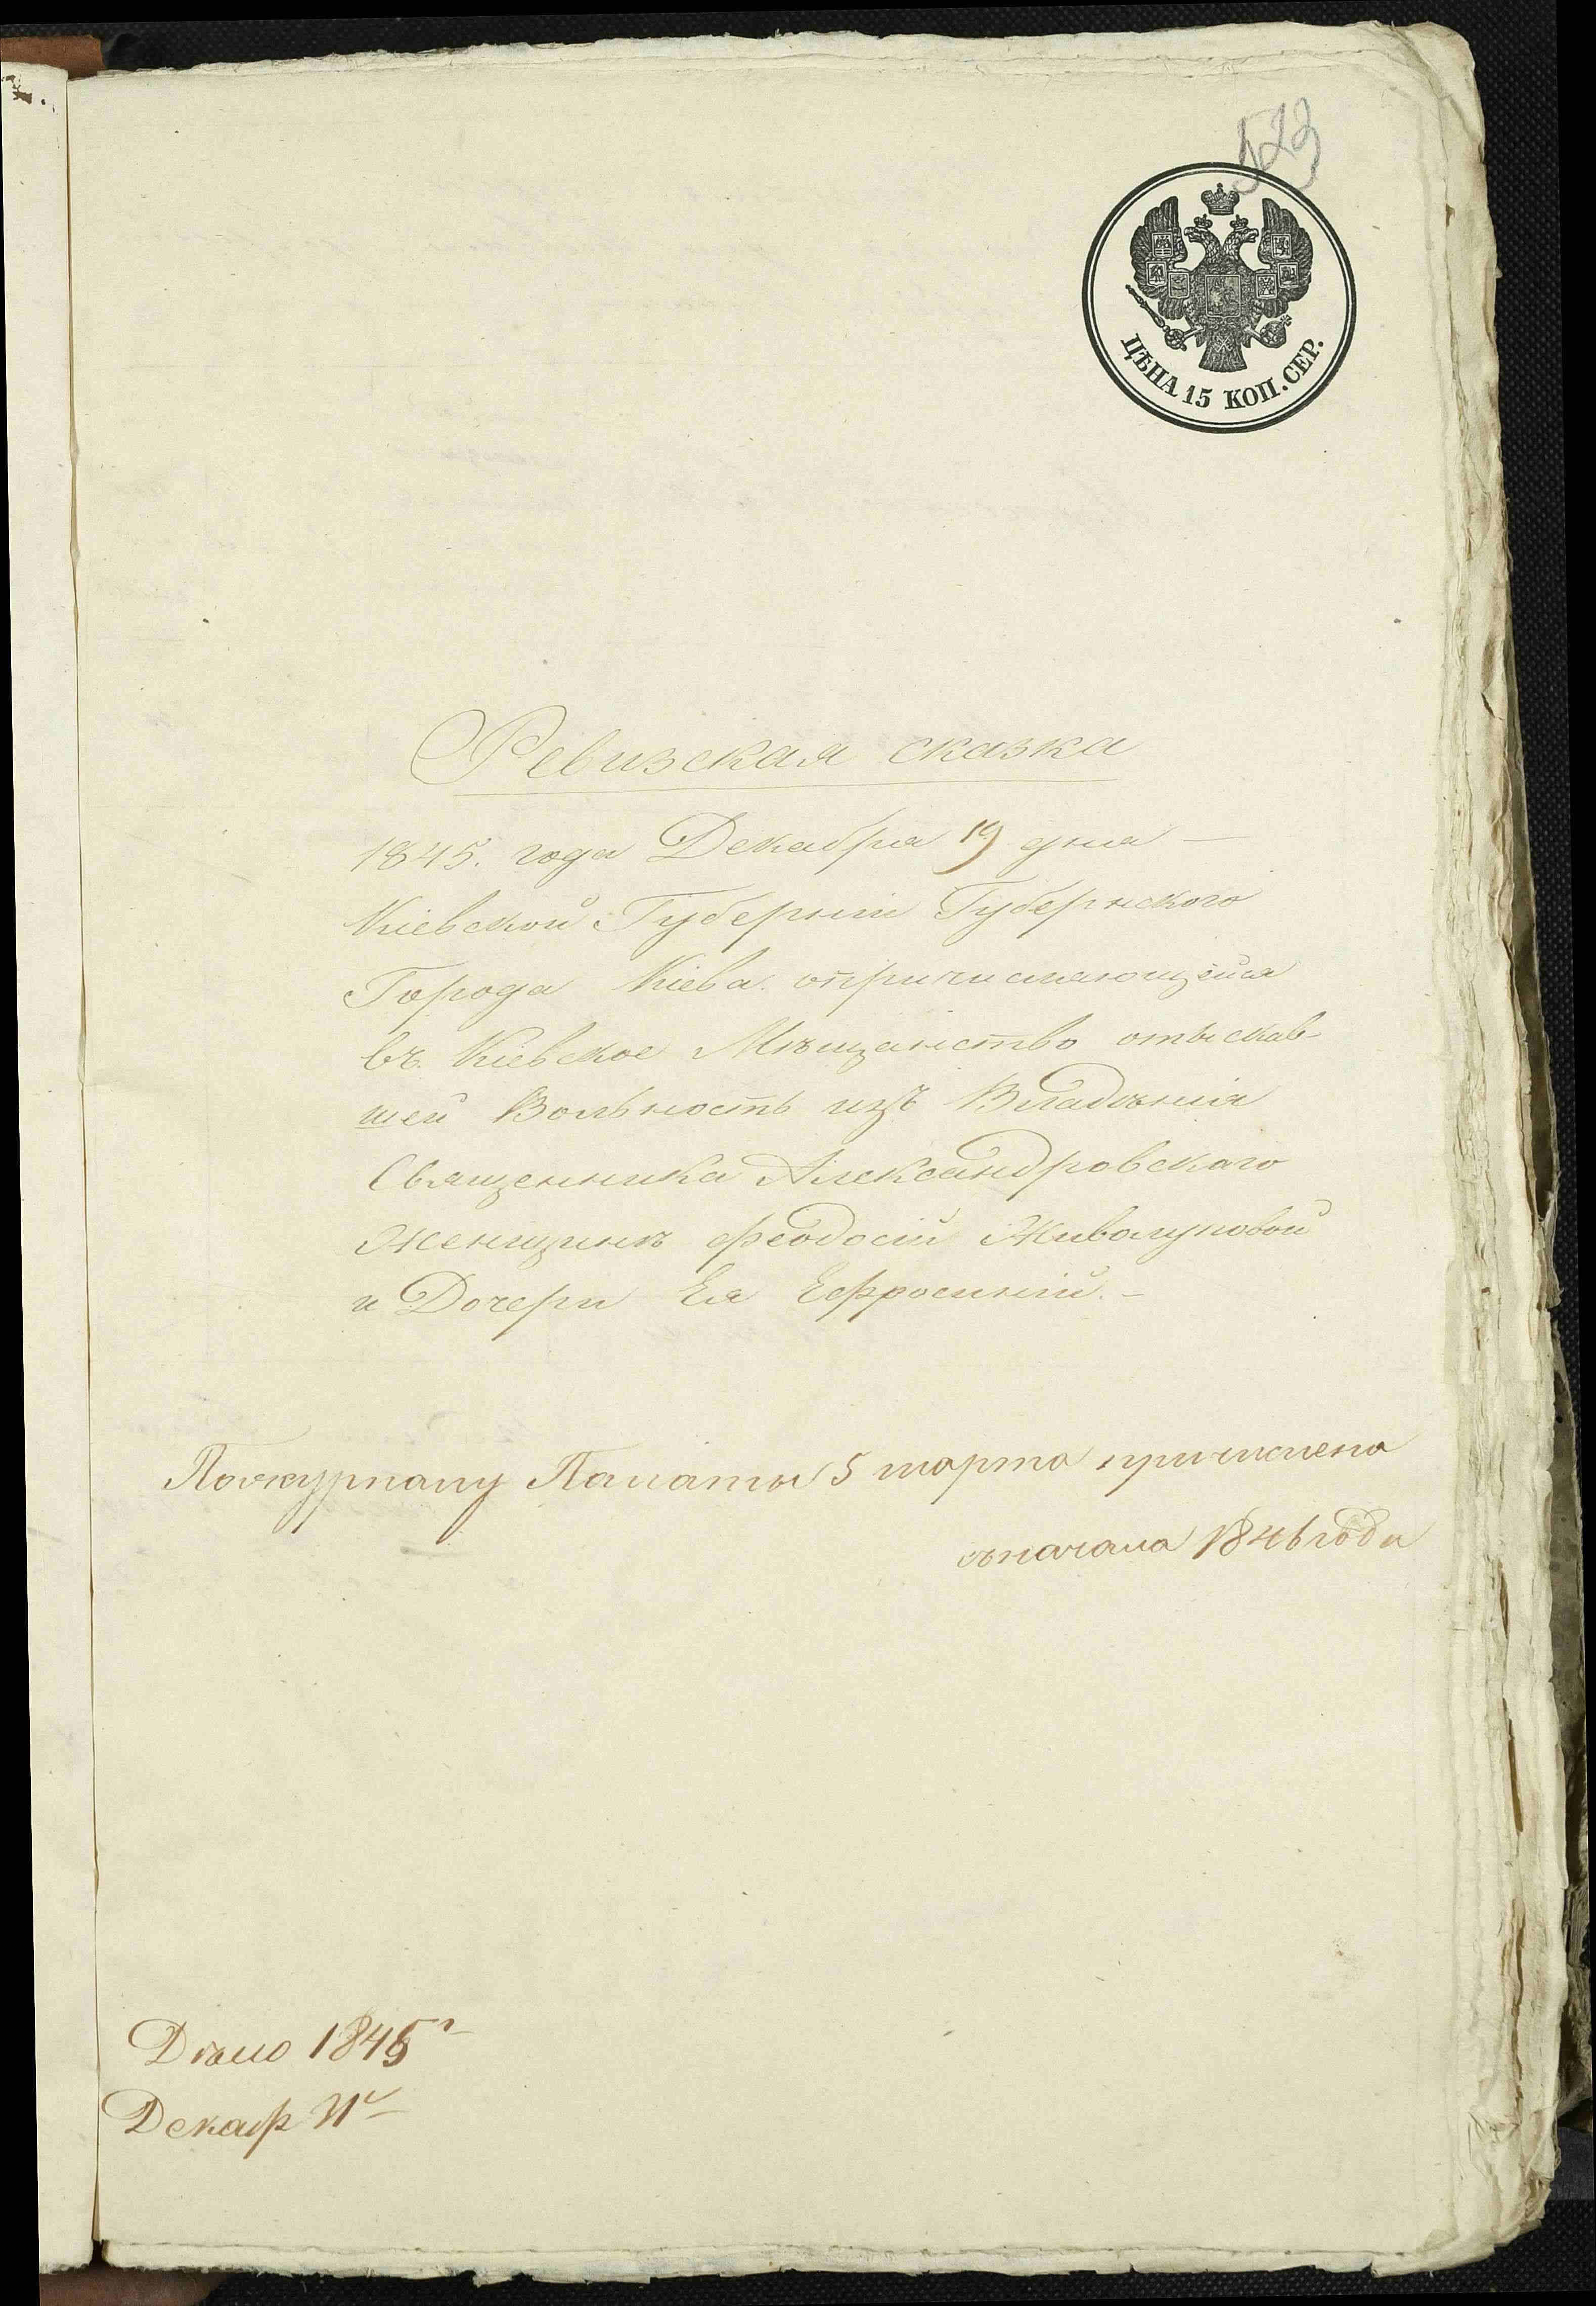 523
ЦѢНА 15 КОП. СЕР.
Ревизская сказка
1845. года Декабря 19 дня —
Кіевской Губерніи Губернского
Города Кіева. опричисляющейся
въ Кіевское Мѣщанство отыскав-
шей Вольность изъ Владѣнія
Священника Александровскаго
Женщинѣ Феодосіи Живолуповой
и Дочери Ея Ефросиніи. —
Пожурналу Палаты 5 марта причислена
съначала 1846 года
Дѣло 1845 г
Декабр